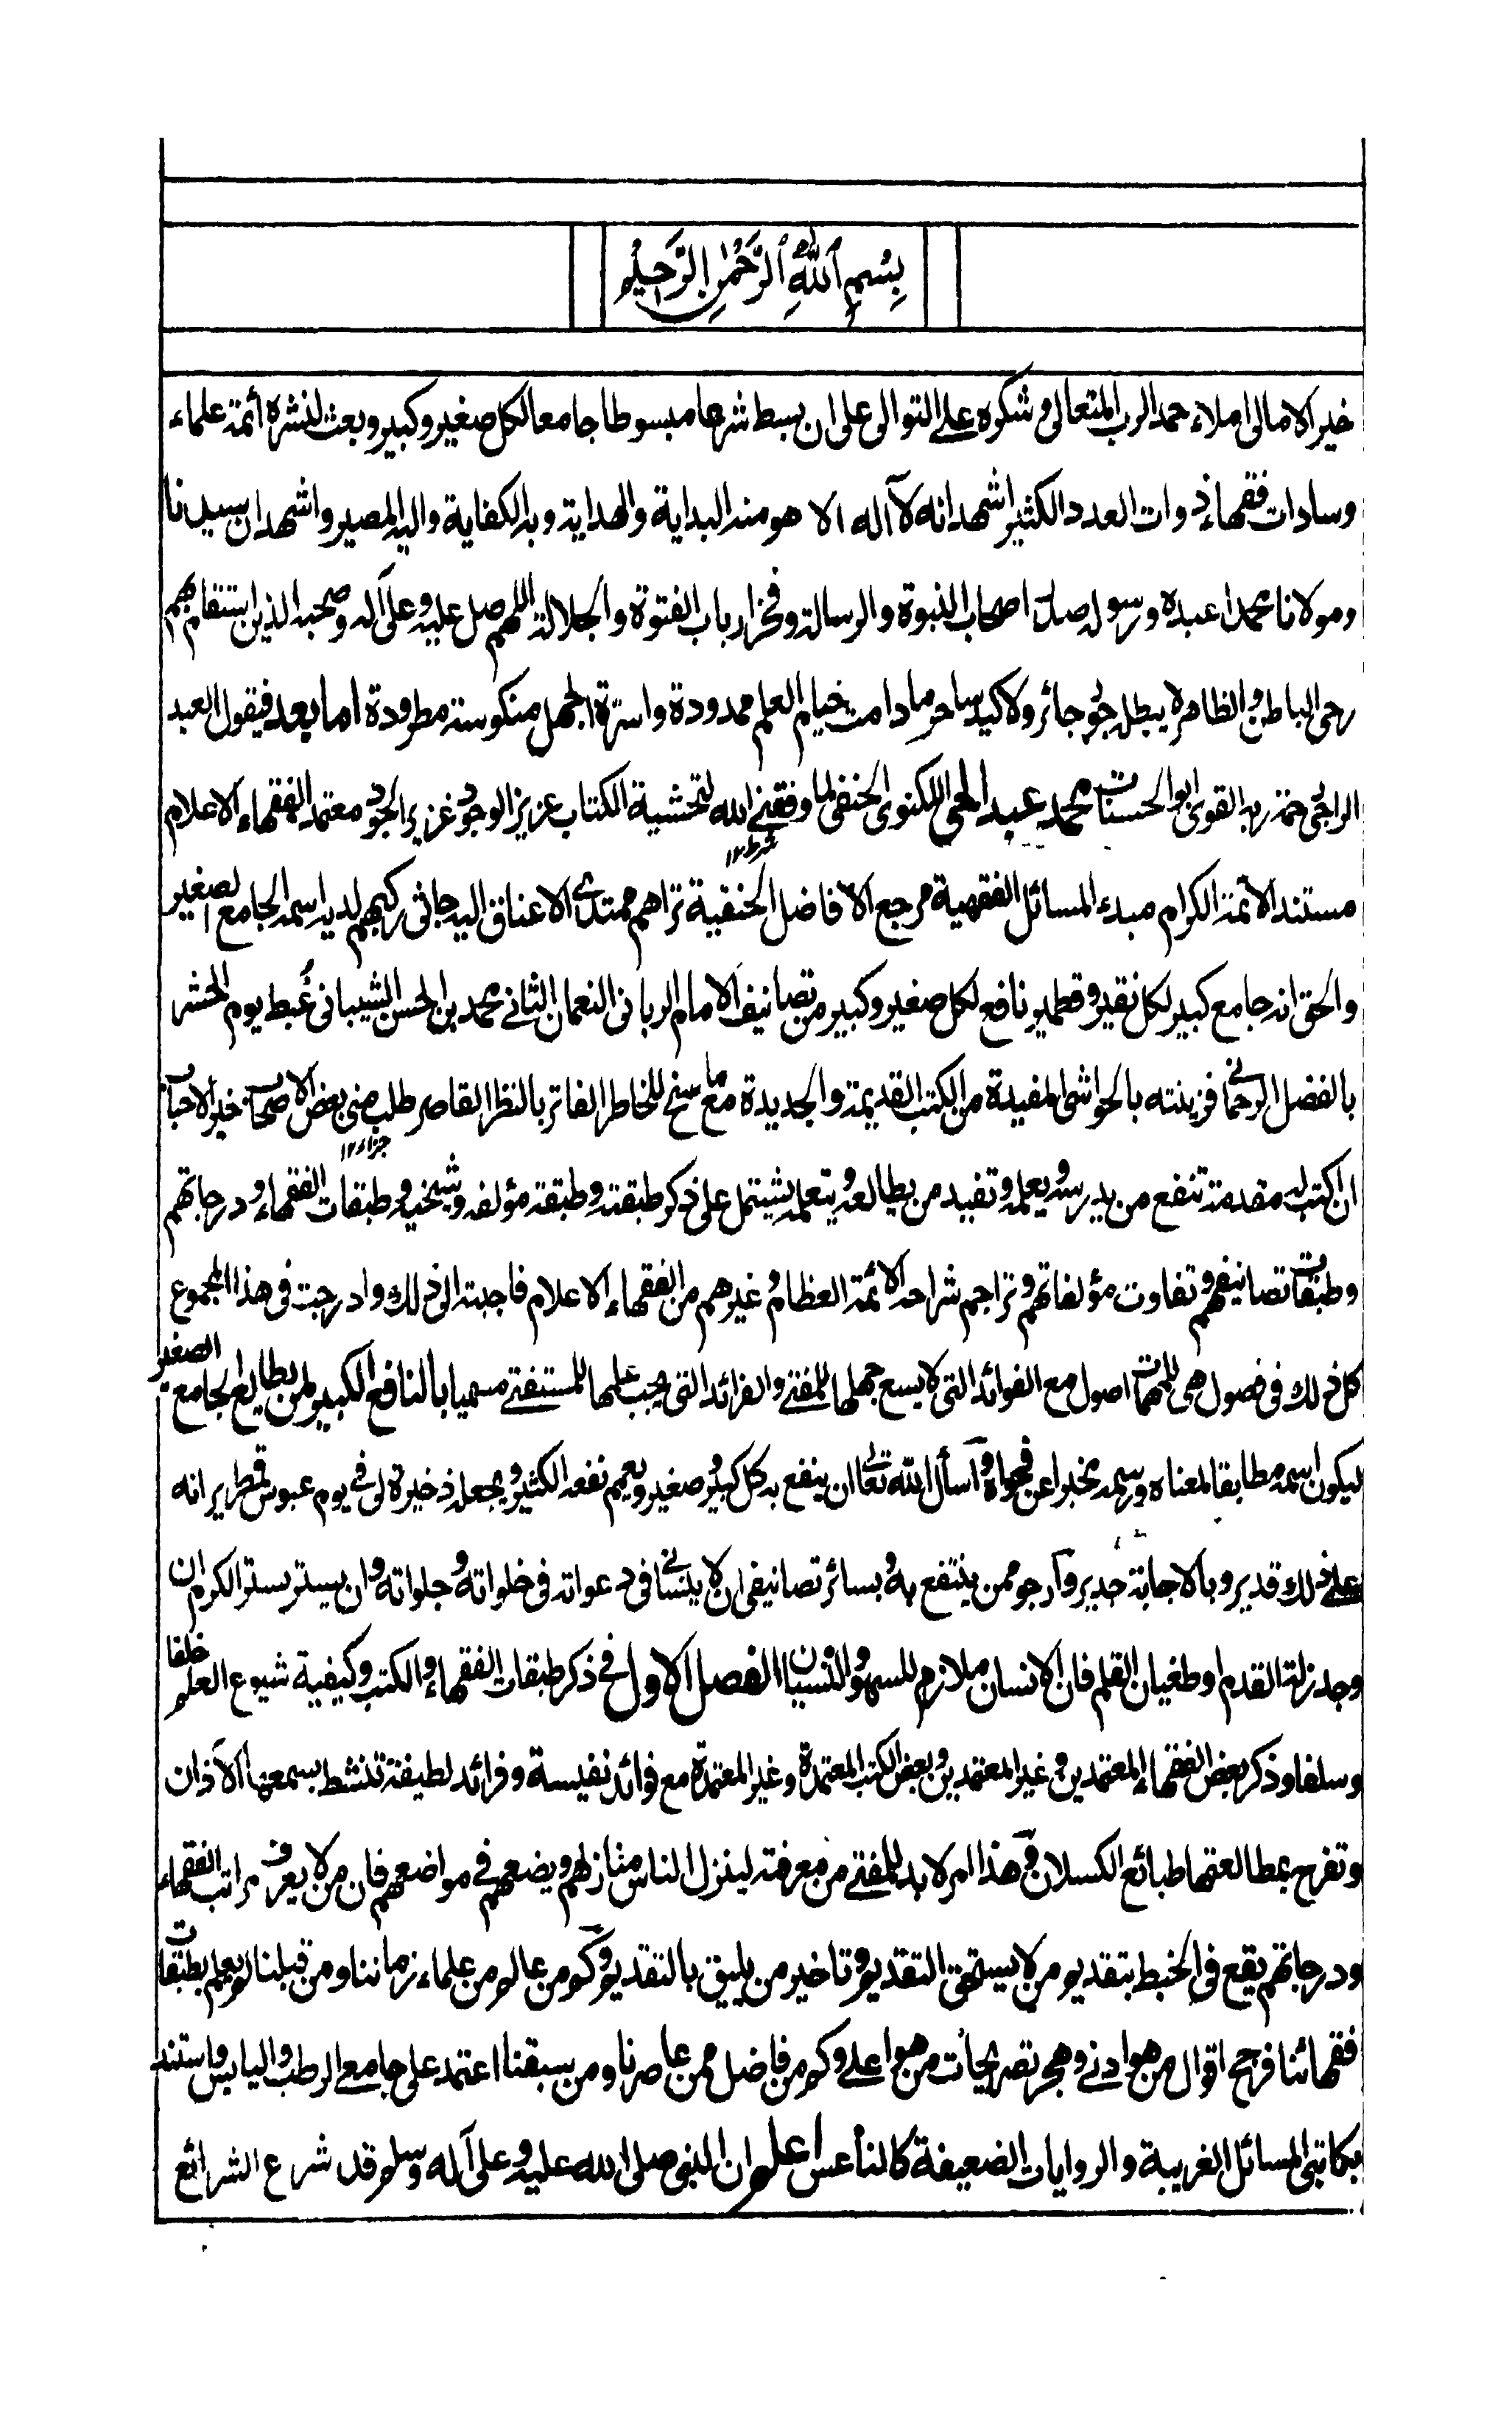 بِسْمِ ٱللّٰهِ ٱلرَّحْمٰنِ الرَّحِيْمِ
خير الامالى املاء حمد الرب المتعالى وشكره على التوالى على ان بسط شرعا مبسوطا جامعا لكل صغير وكبير وبعث لنشره أئمة علماء
وسادات فقهاء ذوات العدد الكثير اشهد انه لآ آله الا هو منه البداية والهداية وبه الكفاية واليه المصير واشهد ان سيدنا
ومولانا محمدا عبده ورسوله اصحاب النبوة والرسالة وفخر ارباب الفتوة والجلالة اللهم صل عليه وعلى آله وصحبه الذين استقام بهم
رحى الباطن والظاهر لا يبطله جور جائر ولا كيد ساحر ما دامت خيام العلم ممدودة واسترة الجهل منكوسة مطرودة اما بعد فيقول العبد
الراجى رحمة ربه القوى ابو الحسنات محمد عبد الحى اللكنوى الحنفى لما وفقنى الله لتحشية الكتاب عزيز الوجود غزير الجود معتمد الفقهاء الاعلام
شرط ١٢
مستند الائمة الكرام مبدء المسائل الفقهية مرجع الافاضل الحنفية تراهم ممتدى الاعناق اليه جاثى ركبهم لديه اسمه الجامع الصغير
والحق انه جامع كبير لكل نقير وقطمير نافع لكل صغير وكبير من تصانيف الامام الربانى النعمان الثانى محمد بن الحسن الشيبانى غُبط يوم الحشر
بالفضل الرحمانى فزينته بالحواشى المفيدة من الكتب القديمة والجديدة مع ما سنح للخاطر الفاتر بالنظر القاصر طلب منى بعض الاصحاب خير الاحباب
جزاء ١٢
ان اكتب له مقدمة تنفع من يدرسه ويعلمه وتفيد من يطالعه ويتعلمه يشتمل على ذكر طبقته وطبقة مؤلفه وشيخيه وطبقات الفقهاء ودرجاتهم
وطبقات تصانيفهم وتفاوت مؤلفاتهم وتراجم شراحه الائمة العظام وغيرهم من الفقهاء الاعلام فاجبته الى ذلك وادرجت فى هذا المجموع
كل ذلك فى فصول هى للمهمات اصول مع الفوائد التى لا يسع جهلها للمفتى والفرائد التى يجب علمها للمستفتى مسميا بالنافع الكبير لمن يطالع الجامع الصغير
ليكون اسمه مطابقا لمعناه ورسمه مخبرا عن فحواه وأسأل الله تعالى ان ينفع به كل كبير وصغير ويعمم نفعه الكثير ويجعله ذخيرة لى فى يوم عبوس قمطرير انه
على ذلك قدير وبالاجابة جدير وأرجو ممن ينتفع به وبسائر تصانيفى ان لا ينسانى فى دعواته فى خلواته وجلواته وان يستر بستر الكرم ان
وجد زلة القدم او طغيان القلم فان الانسان ملازم للسهو والنسيان الفصل الاول فى ذكر طبقات الفقهاء والكتب وكيفية شيوع العلم خلفا
وسلفا وذكر بعض الفقهاء المعتمدين وغير المعتمدين وبعض الكتب المعتمدة وغير المعتمدة مع فوائد نفيسة وفرائد لطيفة تنشط بسمعها الآذان
وتفرح بمطالعتها طبائع الكسلان وهذا امر لا بد للمفتى من معرفته لينزل الناس منازلهم ويضعهم فى مواضعهم فان من لا يعرف مراتب الفقهاء
ودرجاتهم يقع فى الخبط بتقديم من لا يستحق التقديم وتاخير من يليق بالتقديم وكم من عالم من علماء زماننا ومن قبلنا لم يعلم بطبقات
فقهائنا فرجح اقوال من هو ادنى وهجر تصريحات من هو اعلى وكم من فاضل ممن عاصرنا ومن سبقنا اعتمد على جامعى الرطب واليابس واستند
بكاتبى المسائل الغريبة والروايات الضعيفة كالناعس اعلم ان النبى صلى الله عليه وعلى آله وسلم قد شرع الشرائع